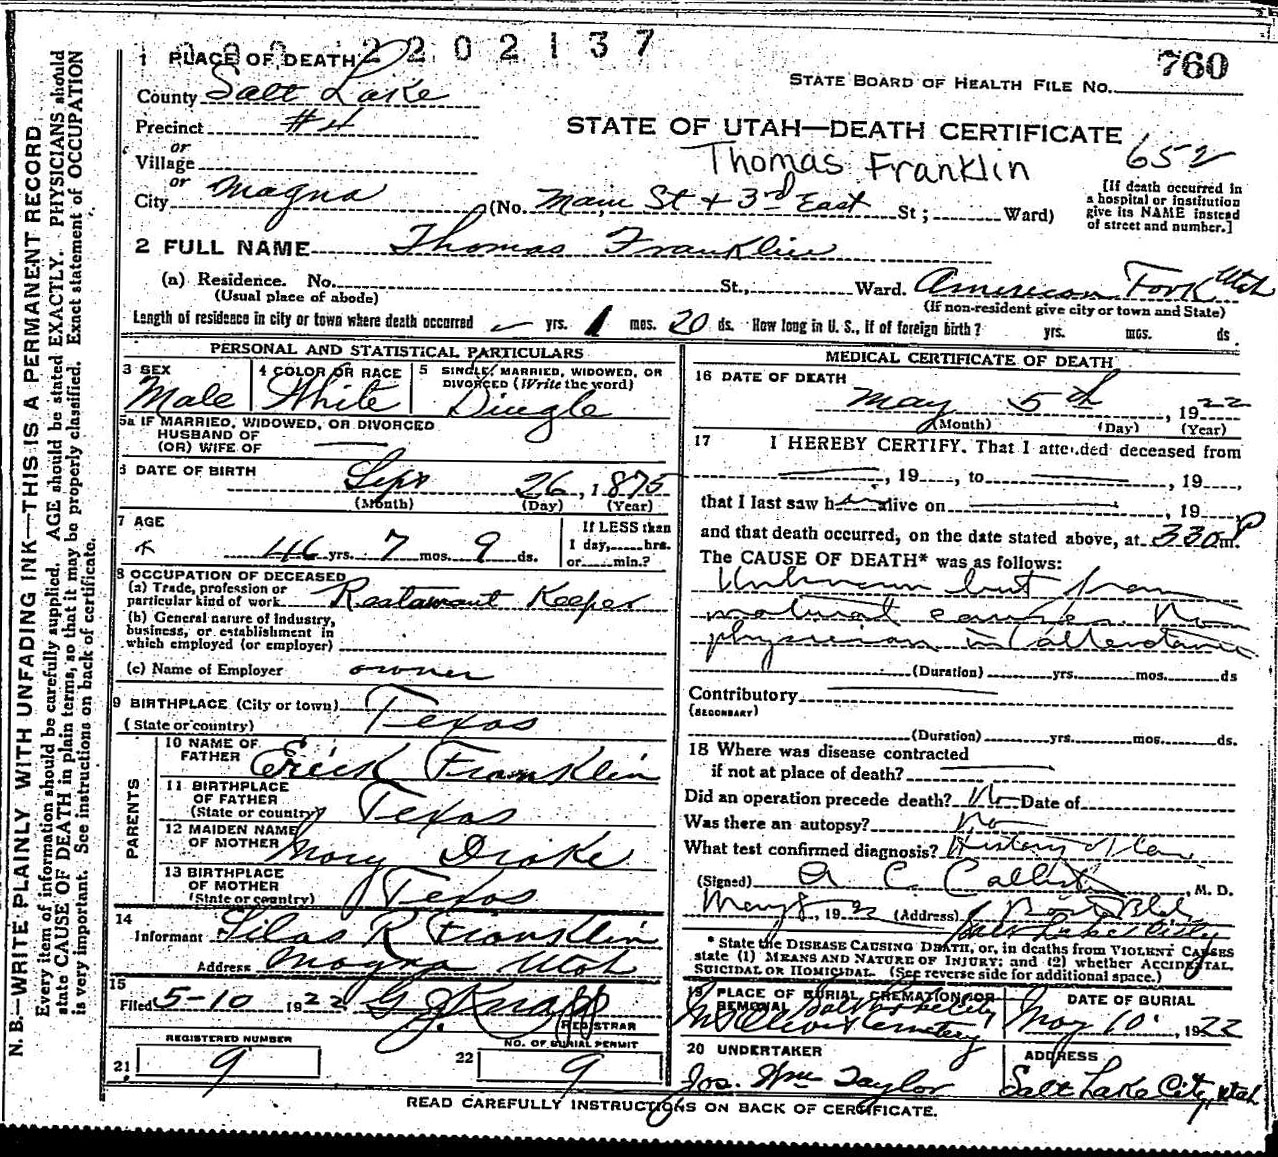 2 2 0 2 1 3 7
760
1 PLACE OF DEATH
STATE BOARD OF HEALTH FILE No.
County Salt Lake
Precinct #4
STATE OF UTAH—DEATH CERTIFICATE
652
or
Thomas Franklin
Village
or
City Magna (No. Main St + 3rd East St; Ward)
[If death occurred in
a hospital or institution
give its NAME instead
of street and number.]
2 FULL NAME Thomas Franklin
(a) Residence. No. St., Ward. American Fork Utah
(Usual place of abode)
(If non-resident give city or town and State)
Length of residence in city or town where death occurred yrs. 1 mos. 20 ds. How long in U. S., if of foreign birth? yrs. mos. ds.
PERSONAL AND STATISTICAL PARTICULARS
3 SEX
Male
4 COLOR OR RACE
White
5 SINGLE, MARRIED, WIDOWED, OR
DIVORCED (Write the word)
Single
5a IF MARRIED, WIDOWED, OR DIVORCED
HUSBAND OF
(OR) WIFE OF
6 DATE OF BIRTH Sept 26, 1875
(Month) (Day) (Year)
7 AGE
46 yrs. 7 mos. 9 ds.
If LESS than
1 day, hrs.
or min.?
8 OCCUPATION OF DECEASED
(a) Trade, profession or
particular kind of work Restaurant Keeper
(b) General nature of Industry,
business, or establishment in
which employed (or employer)
(c) Name of Employer owner
9 BIRTHPLACE (City or town) Texas
(State or country)
PARENTS
10 NAME OF
FATHER Erick Franklin
11 BIRTHPLACE
OF FATHER
(State or country) Texas
12 MAIDEN NAME
OF MOTHER Mary Drake
13 BIRTHPLACE
OF MOTHER
(State or country) Texas
14
Informant Silas R Franklin
Address Magna Utah
15
Filed 5-10 1922 G. J. Knapp
REGISTRAR
REGISTERED NUMBER
21 9
NO. OF BURIAL PERMIT
22 9
MEDICAL CERTIFICATE OF DEATH
16 DATE OF DEATH
May 5th, 1922
(Month) (Day) (Year)
17 I HEREBY CERTIFY, That I attended deceased from
, 19 , to , 19 ,
that I last saw him alive on , 19
and that death occurred, on the date stated above, at 330 P m.
The CAUSE OF DEATH* was as follows:
Unknown but from
natural causes. No
physician in attendance
(Duration) yrs. mos. ds
Contributory
(SECONDARY)
(Duration) yrs. mos. ds.
18 Where was disease contracted
if not at place of death?
Did an operation precede death? No Date of
Was there an autopsy? No
What test confirmed diagnosis? History of
(Signed) A C. Callister, M. D.
May 8, 1922 (Address) Boston Bldg
Salt Lake City
* State the DISEASE CAUSING DEATH, or, in deaths from VIOLENT CAUSES
state (1) MEANS AND NATURE OF INJURY; and (2) whether ACCIDENTAL,
SUICIDAL OR HOMICIDAL. (See reverse side for additional space.)
19 PLACE OF BURIAL CREMATION OR
REMOVAL Salt Lake City
Mt Olivet Cemetery
DATE OF BURIAL
May 10, 1922
20 UNDERTAKER
Jos. Wm Taylor
ADDRESS
Salt Lake City, Utah
READ CAREFULLY INSTRUCTIONS ON BACK OF CERTIFICATE.
N. B.—WRITE PLAINLY WITH UNFADING INK—THIS IS A PERMANENT RECORD
Every item of information should be carefully supplied. AGE should be stated EXACTLY. PHYSICIANS should
state CAUSE OF DEATH in plain terms, so that it may be properly classified. Exact statement of OCCUPATION
is very important. See instructions on back of certificate.